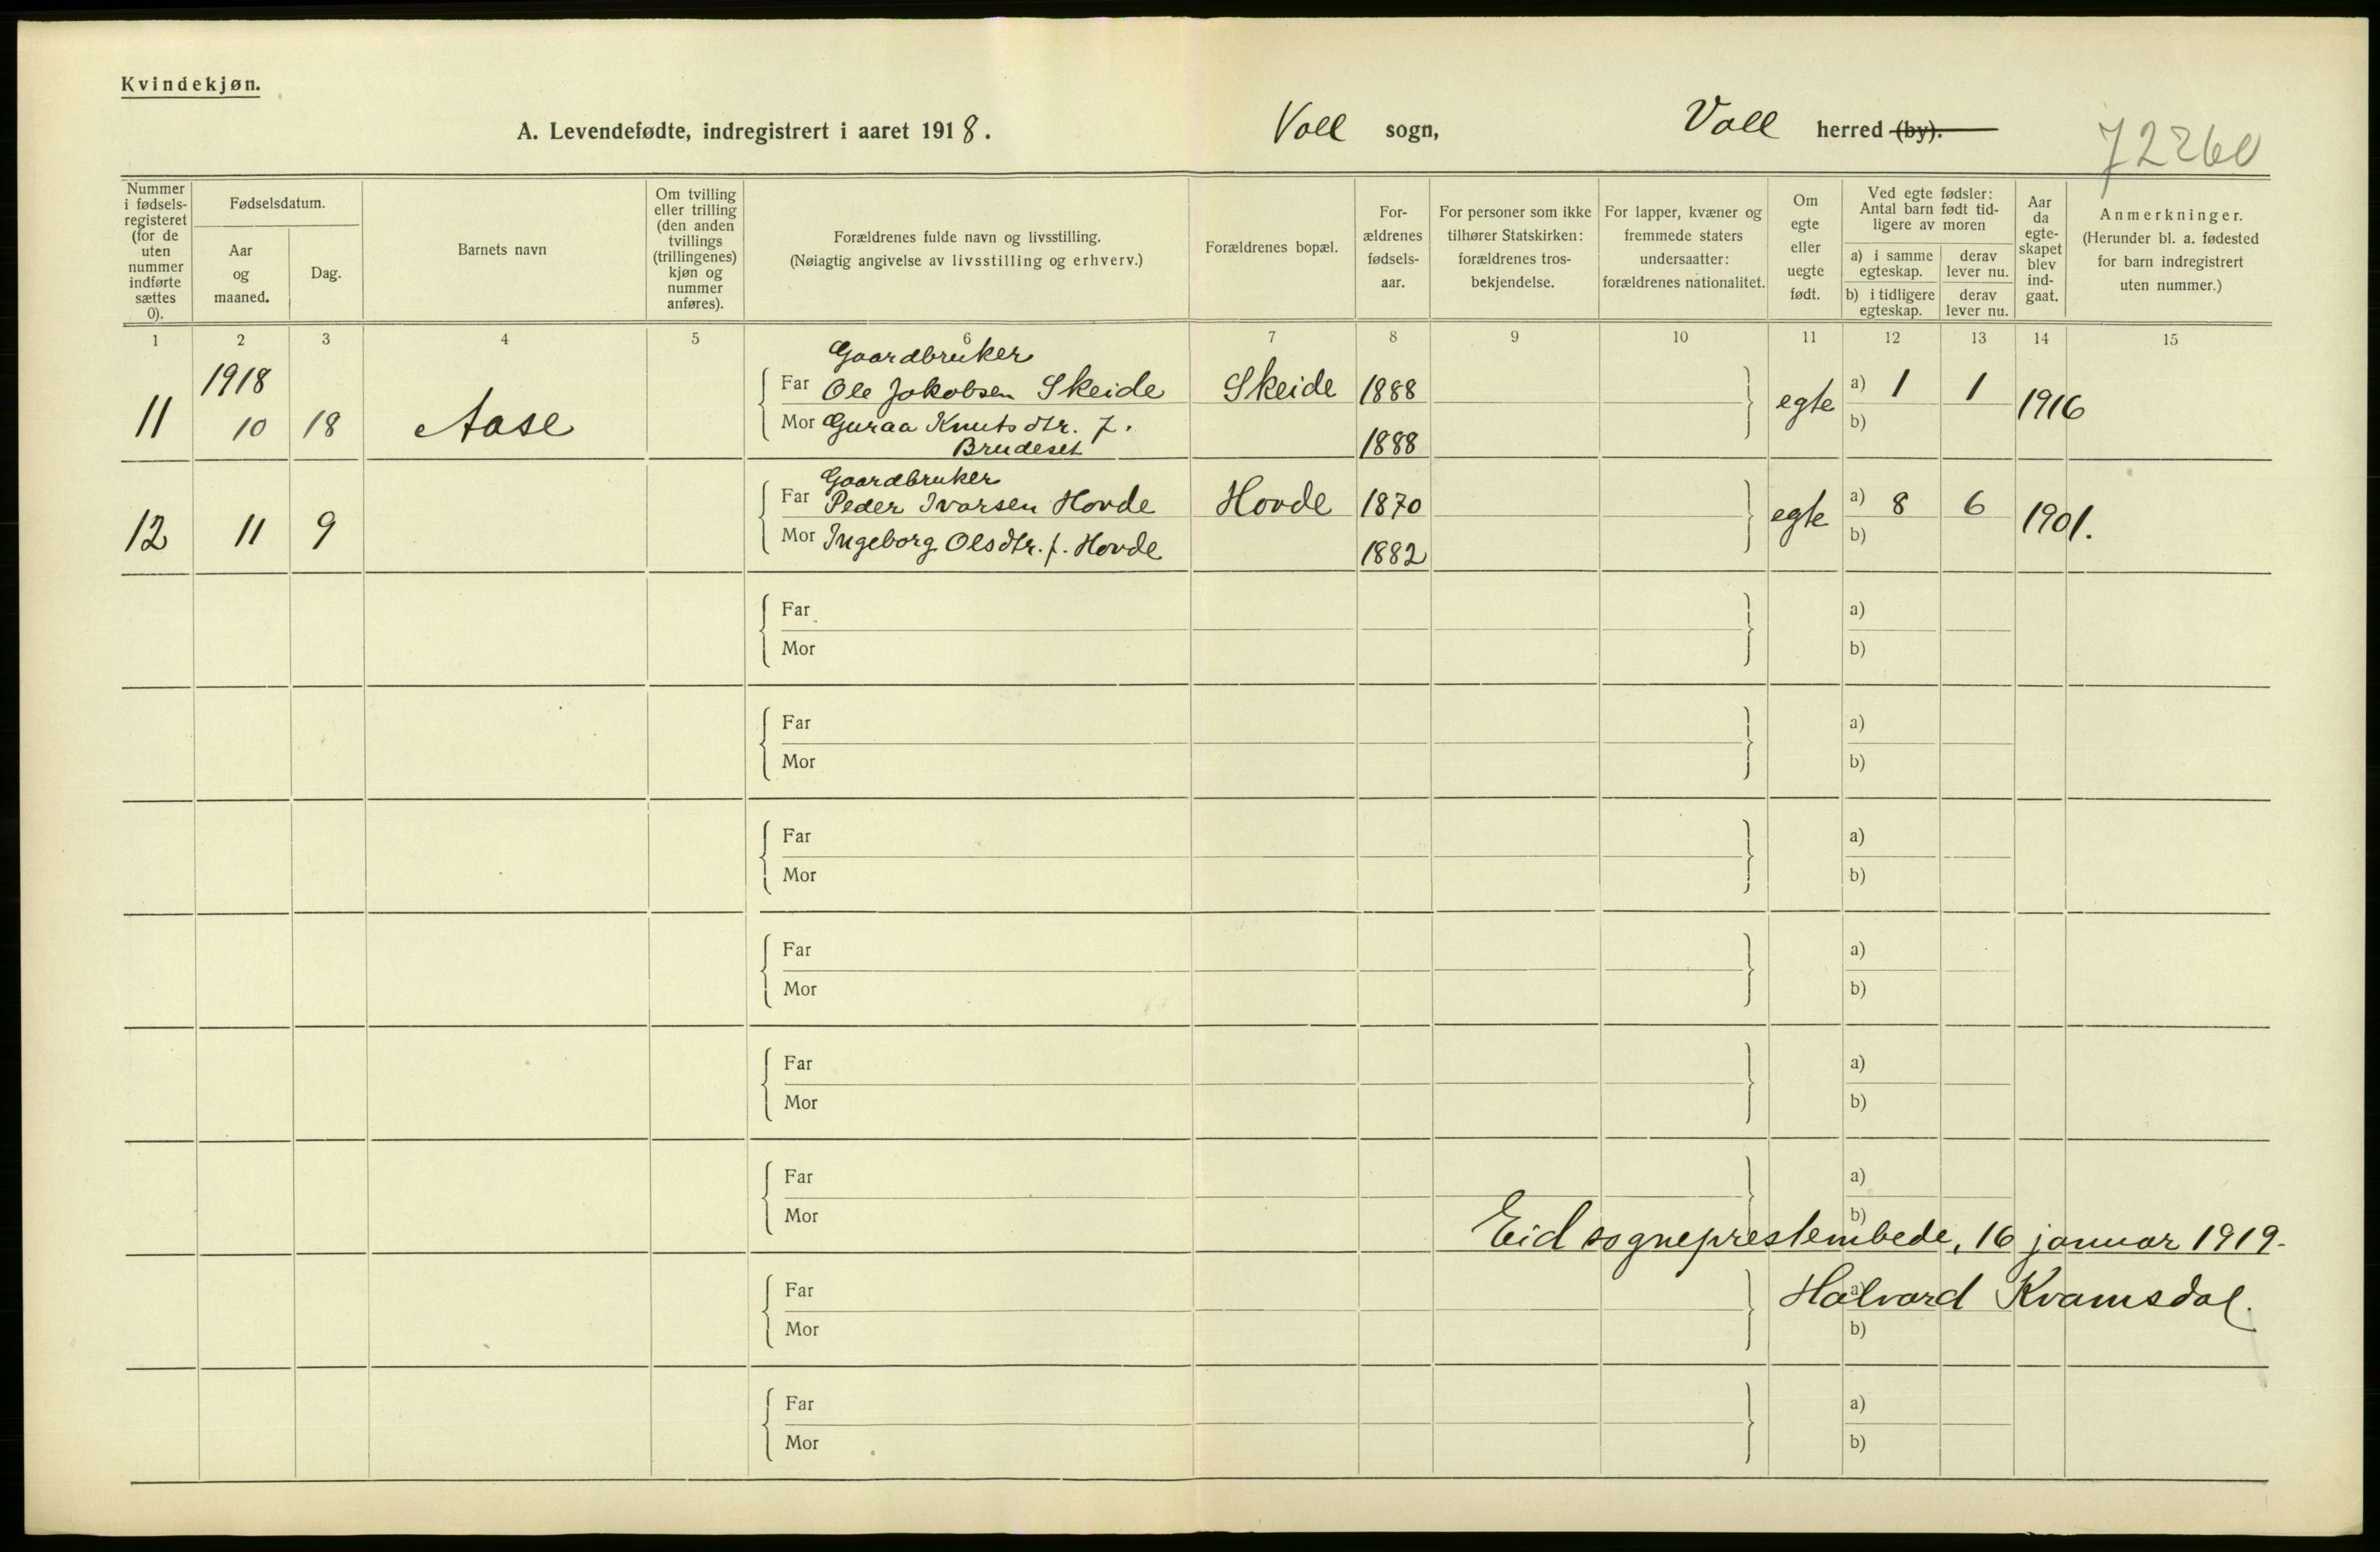 Kvindekjøn.
A. Levendefødte, indregistrert i aaret 1918. Voll sogn, Voll herred (by).
72260
Nummer i fødsels-registeret (for de uten nummer indførte sættes 0).
Fødselsdatum.
Aar og maaned.
Dag.
Barnets navn
Om tvilling eller trilling (den anden tvillings (trillingenes) kjøn og nummer anføres).
Forældrenes fulde navn og livsstilling.
(Nøiagtig angivelse av livsstilling og erhverv.)
Forældrenes bopæl.
For-ældrenes fødsels-aar.
For personer som ikke tilhører Statskirken: forældrenes tros-bekjendelse.
For lapper, kvæner og fremmede staters undersaatter: forældrenes nationalitet.
Om egte eller uegte født.
Ved egte fødsler: Antal barn født tid-ligere av moren
a) i samme egteskap. derav lever nu.
b) i tidligere egteskap. derav lever nu.
Aar da egte-skapet blev ind-gaat.
Anmerkninger.
(Herunder bl. a. fødested for barn indregistrert uten nummer.)
1 2 3 4 5 6 7 8 9 10 11 12 13 14 15
1918 Gaardbruker
Far Ole Jakobsen Skeide Skeide 1888 a) 1 1
11 10 18 Aase egte 1916
Mor Guraa Knutsdtr. f. b)
Brudeset 1888
Gaardbruker
Far Peder Ivarsen Hovde Hovde 1870 a) 8 6
12 11 9 egte 1901.
Mor Ingeborg Olsdtr. f. Hovde 1882 b)
Far a)
Mor b)
Far a)
Mor b)
Far a)
Mor b)
Far a)
Mor b)
Far a)
Mor b)
Far a)
Mor b)
Eid sogneprestembede, 16 januar 1919.
Far a)
Halvard Kvamsdal.
Mor b)
Far a)
Mor b)